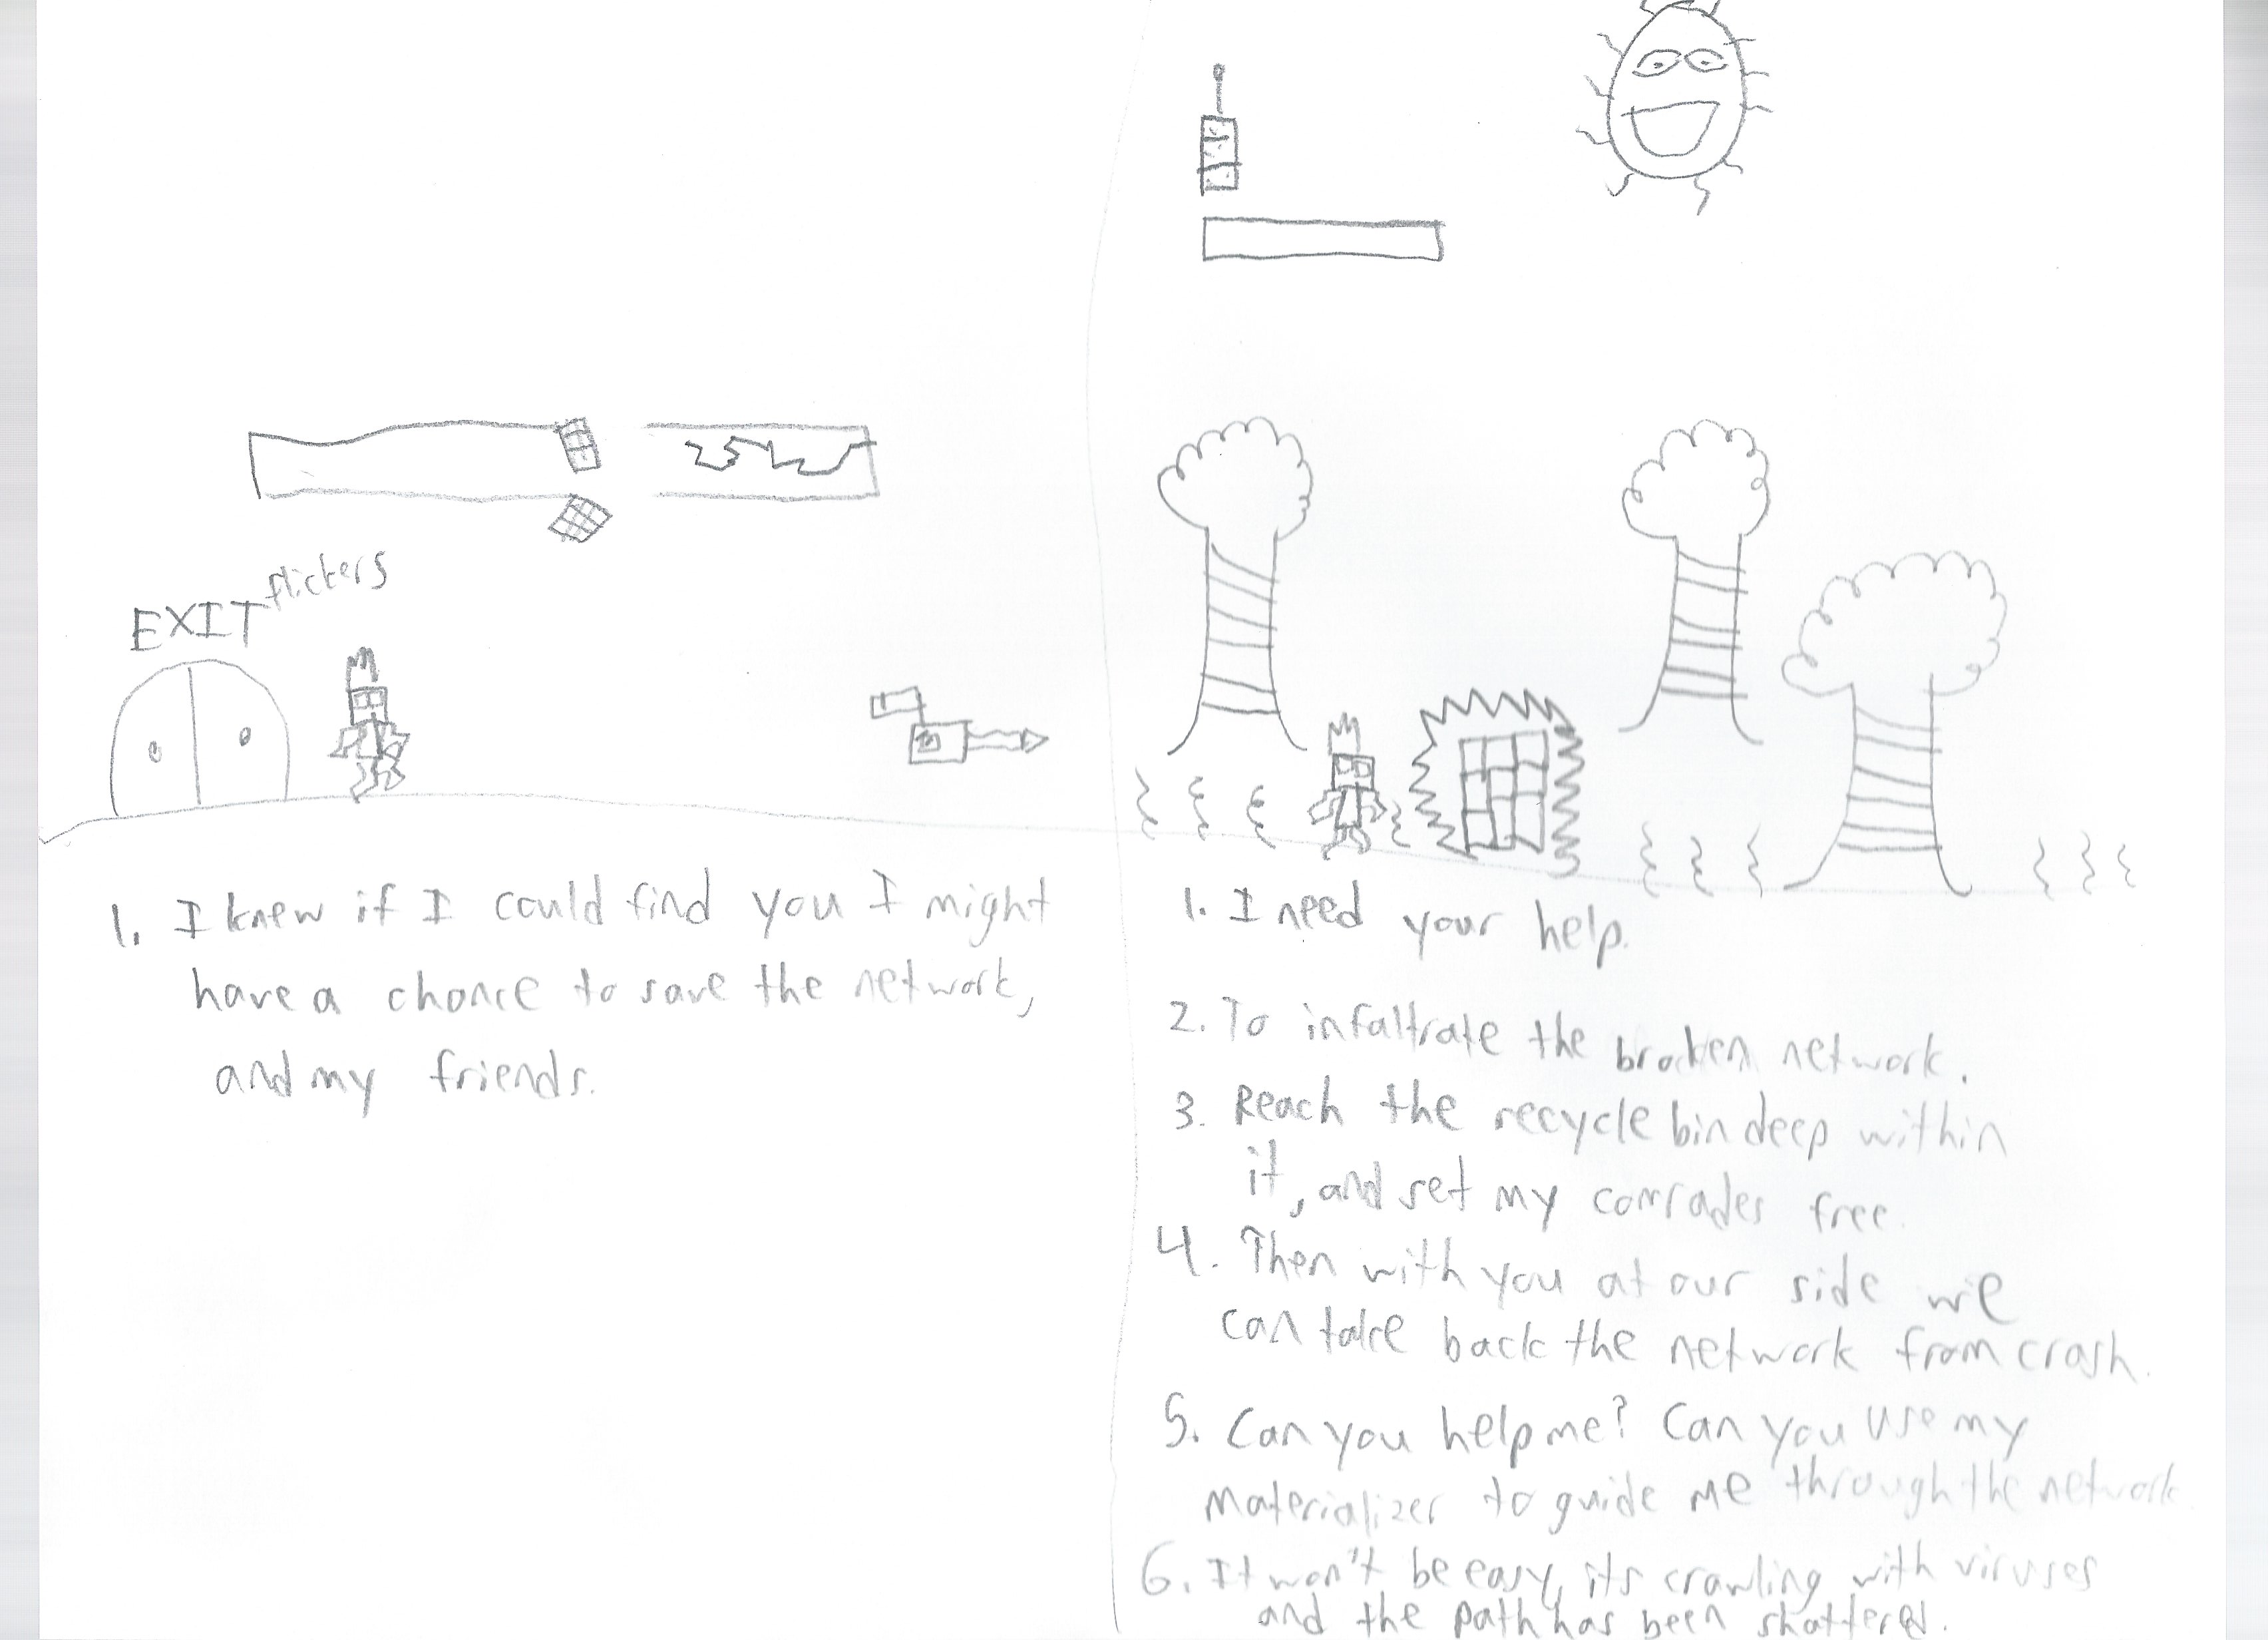 flickers
EXIT
1. I knew if I could find you I might
have a chance to save the network,
and my friends.
1. I need your help.
2. To infaltrate the broken network.
3. Reach the recycle bin deep within
it, and set my comrades free.
4. Then with you at our side we
can take back the network from crash.
5. Can you help me? Can you use my
materializer to guide me through the network
6. It won't be easy, its crawling with viruses
and the path has been shattered.